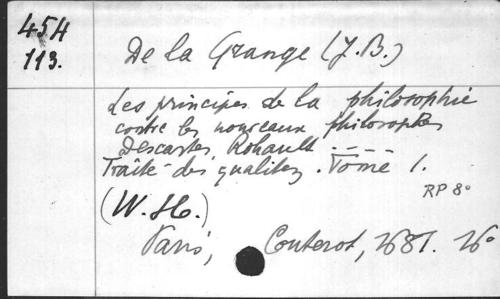 454
113.
De la Grange (J.B.)
Les principes de la philosophie
contre les nouveaux philosophes
Descartes, Rohault -----
Traité des qualitez. Tome 1.
RP 8°
(W. H.)
Paris, Couterot, 1681. 16°